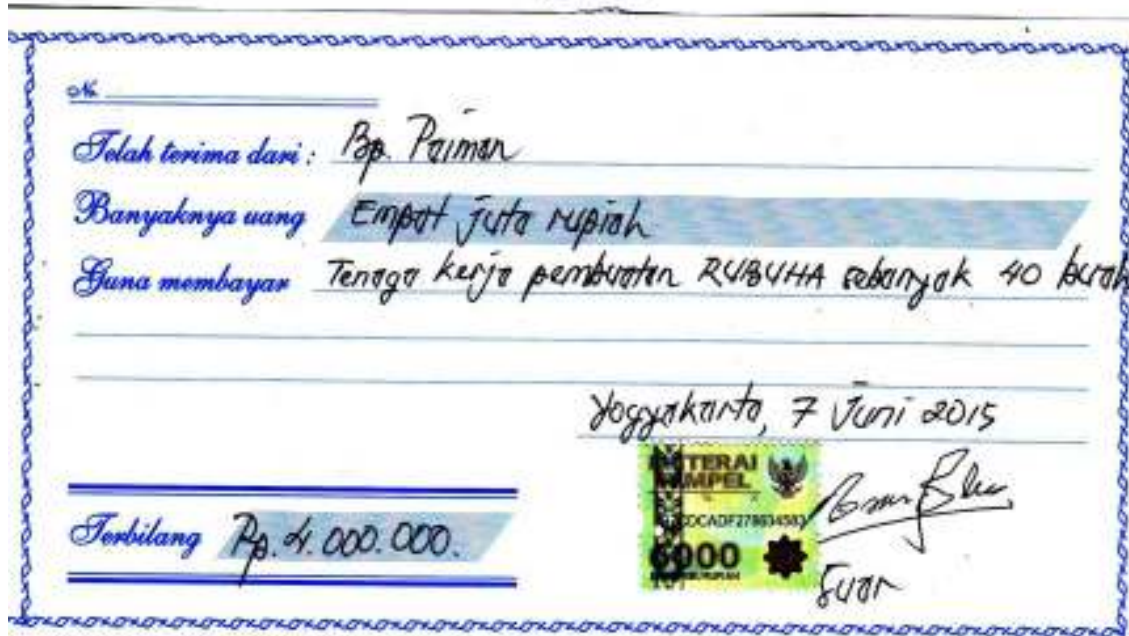 No.
Telah terima dari : Bp. Paiman
Banyaknya uang Empat juta rupiah
Guna membayar Tenaga kerja pembuatan RUBUHA sebanyak 40 buah
Yogyakarta, 7 Juni 2015
METERAI
TEMPEL
6000
Terbilang Rp. 4.000.000.